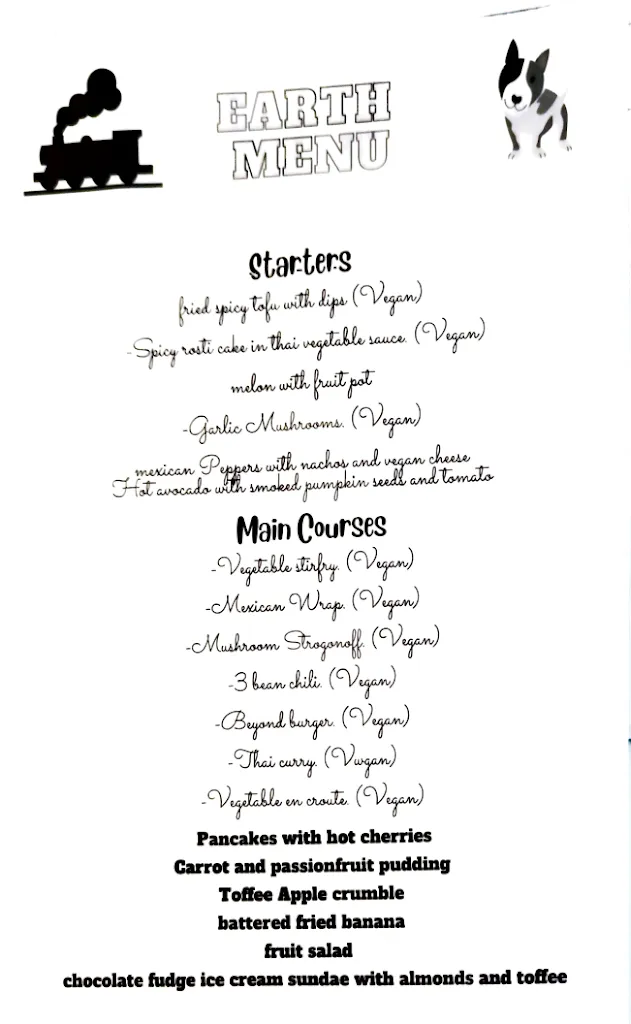 EARTH
MENU
Starters
fried spicy tofu with dips (Vegan)
-Spicy rosti cake in thai vegetable sauce. (Vegan)
melon with fruit pot
-Garlic Mushrooms. (Vegan)
mexican Peppers with nachos and vegan cheese
Hot avocado with smoked pumpkin seeds and tomato
Main Courses
-Vegetable stirfry. (Vegan)
-Mexican Wrap. (Vegan)
-Mushroom Strogonoff. (Vegan)
-3 bean chili. (Vegan)
-Beyond burger. (Vegan)
-Thai curry. (Vwgan)
-Vegetable en croute. (Vegan)
Pancakes with hot cherries
Carrot and passionfruit pudding
Toffee Apple crumble
battered fried banana
fruit salad
chocolate fudge ice cream sundae with almonds and toffee